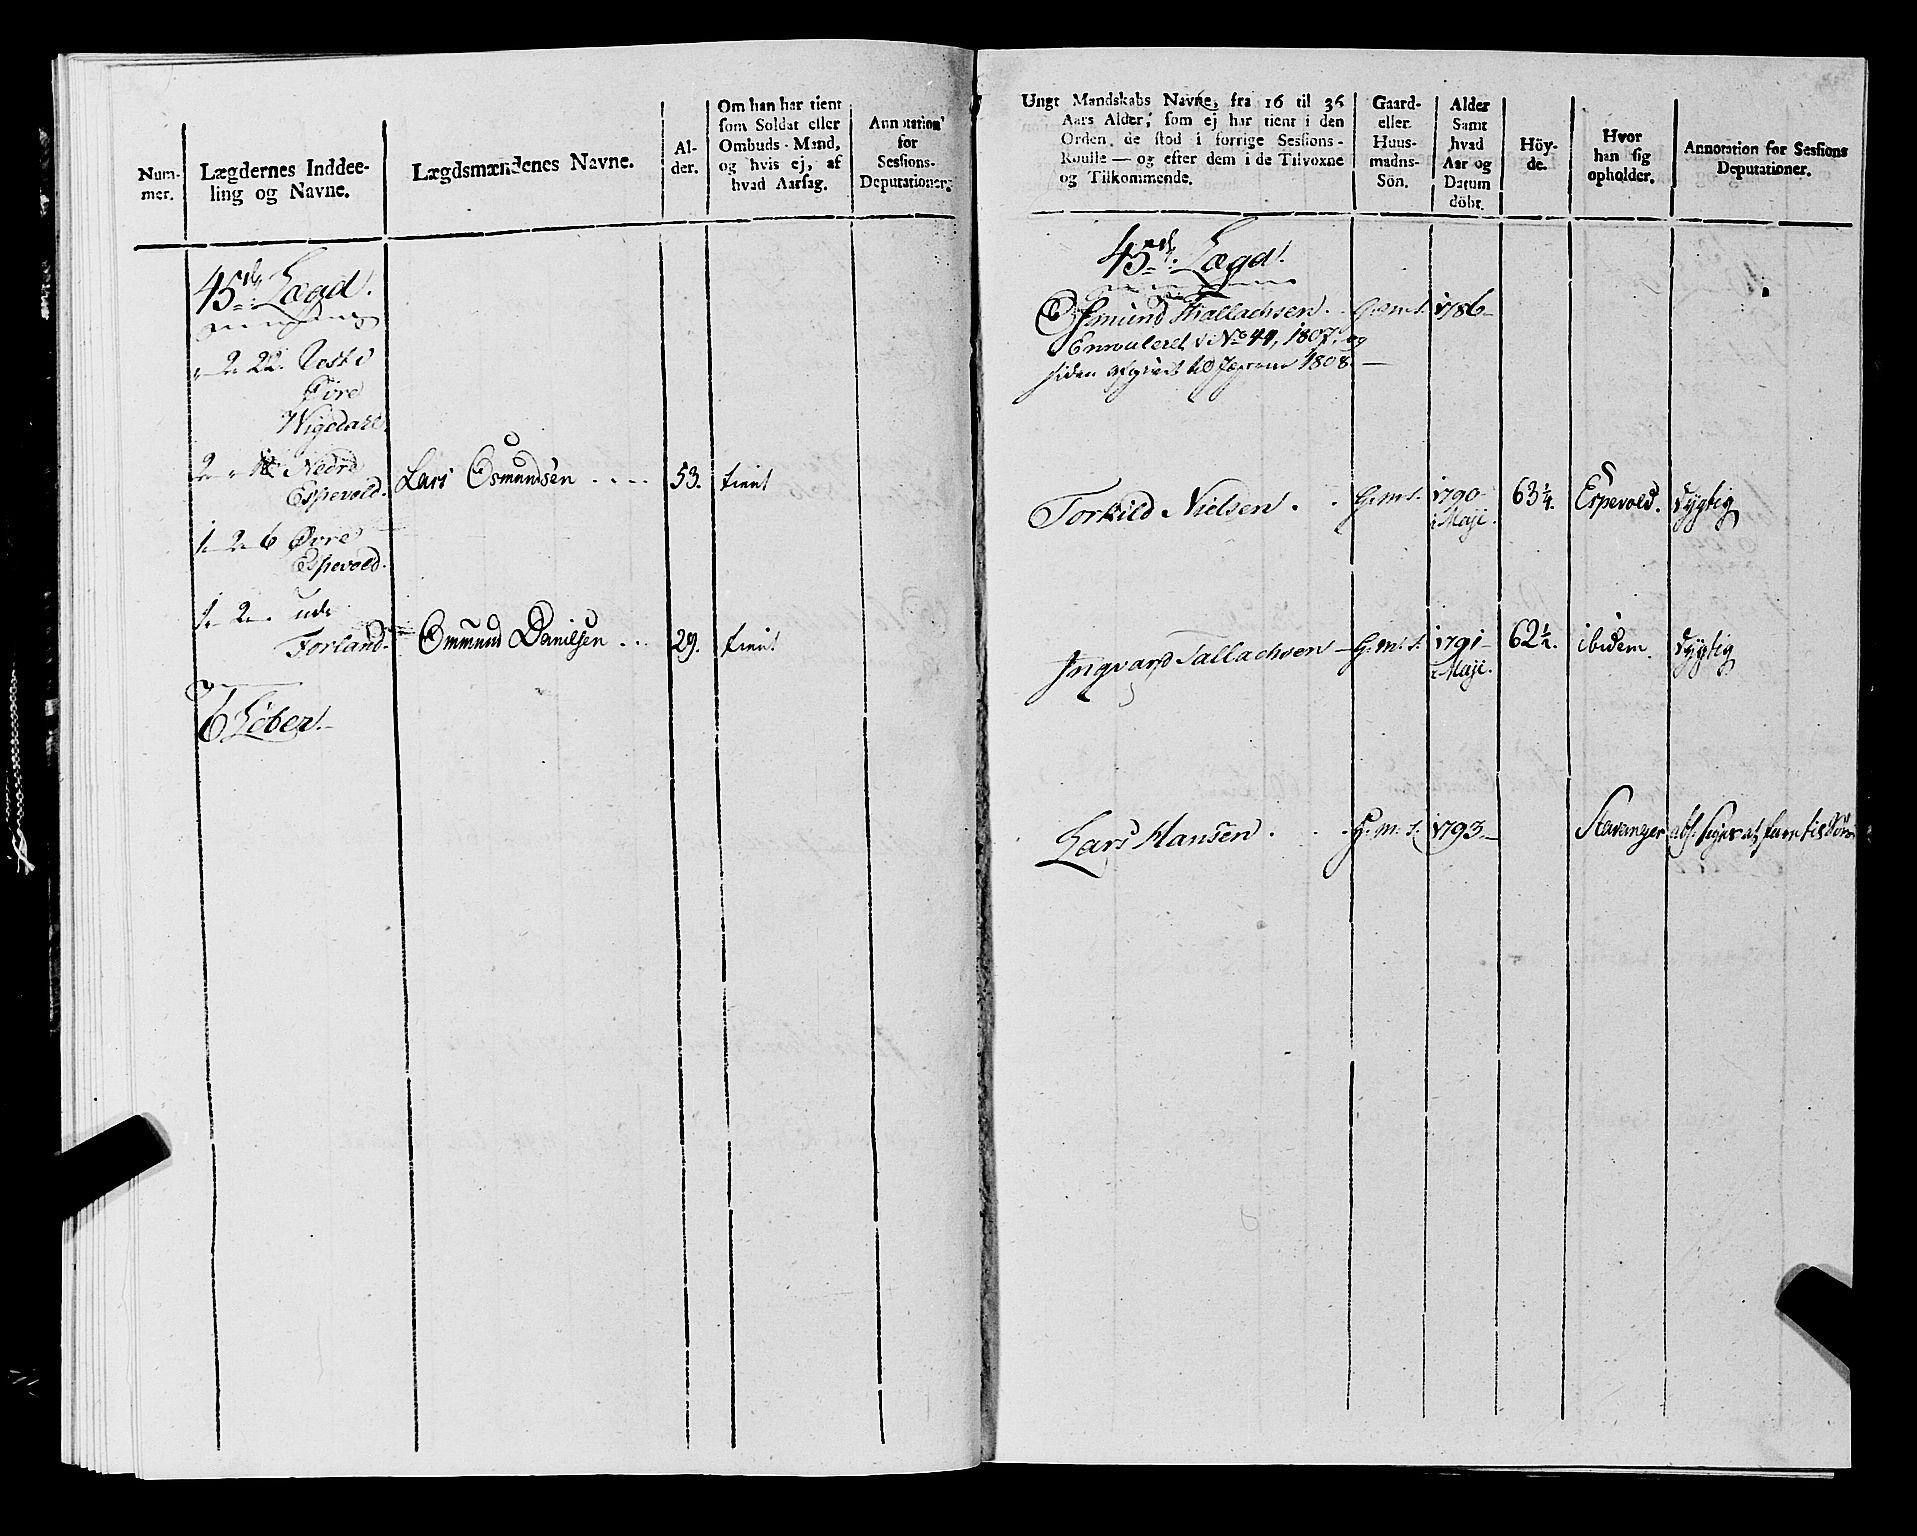 Num-
mer.
Lægdernes Inddee-
ling og Navne.
Lægdsmændenes Navne.
Al-
der.
Om han har tient
som Soldat eller
Ombuds-Mand,
og hvis ej, af
hvad Aarsag.
Annotation
for
Sessions-
Deputationer.
45de Lægd.
2 22. Vest
Øvre
Wigdahl
2 Nedre
Espevold. Lars Osmundsen 53. tient
1 2 6 Øvre
Espevold.
1 2 ude
Forland. Ommund Danielsen 29. tient
6 Løber.
Ungt Mandskabs Navne, fra 16 til 36
Aars Alder, som ej har tient i den
Orden, de stod i forrige Sessions-
Roulle — og efter dem i de Tilvoxne
og Tilkommende.
Gaard-
eller
Huus-
madns-
Sön.
Alder
Samt
hvad
Aar og
Datum
döbt.
Höy-
de.
Hvor
han sig
opholder.
Annotation for Sessions
Deputationer.
45de Lægd.
Osmund Thallachsen. G.m.s. 1786
Enrouleret No 44, 1807, og
siden afgivet til Jægerne 1808
Torkild Nielsen. G.m.s. 1790 Maji. 63 1/4. Espevold. dygtig
Ingvard Tallachsen G.m.s. 1791 Maji. 62 1/2. ibidem. dygtig
Lars Hansen. H.m.s. 1793 Stavanger abs. siges at fare til